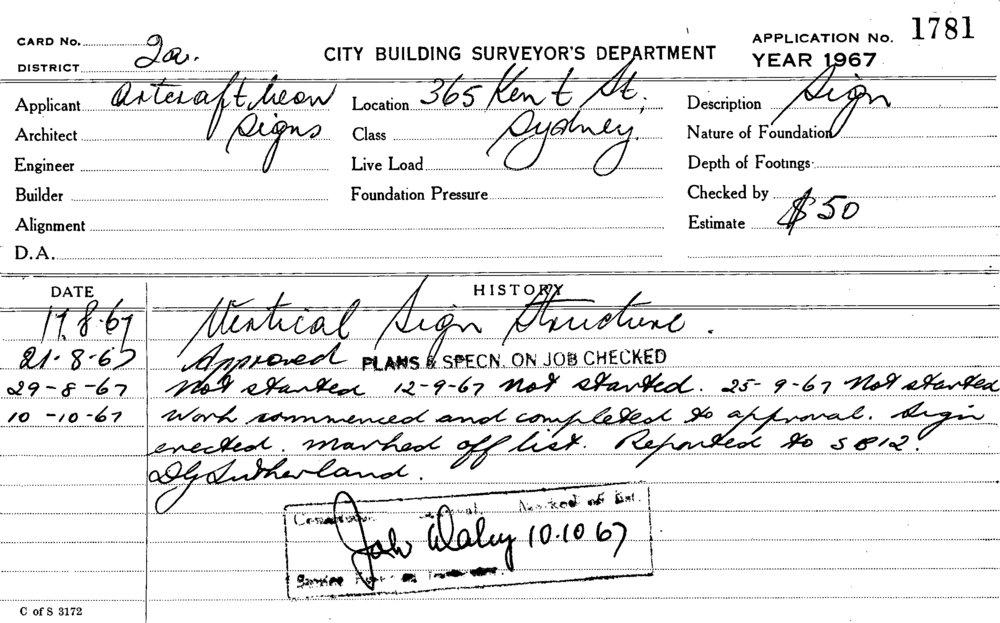 CARD No. 2a. CITY BUILDING SURVEYOR'S DEPARTMENT APPLICATION No. 1781
DISTRICT YEAR 1967
Applicant Artcraft Neon Location 365 Kent St, Description Sign
Architect Signs Class Sydney Nature of Foundation
Engineer Live Load Depth of Footings
Builder Foundation Pressure Checked by
Alignment Estimate $50
D.A.
DATE HISTORY
17.8.67 Vertical Sign Structure.
21-8-67 Approved PLANS & SPECN. ON JOB CHECKED
29-8-67 Not started 12-9-67 Not started. 25-9-67 Not started
10-10-67 Work commenced and completed to approval. Sign
erected. Marked off list. Reported to S812.
DG Sutherland.
Marked off list.
John Daley 10.10 67
C of S 3172